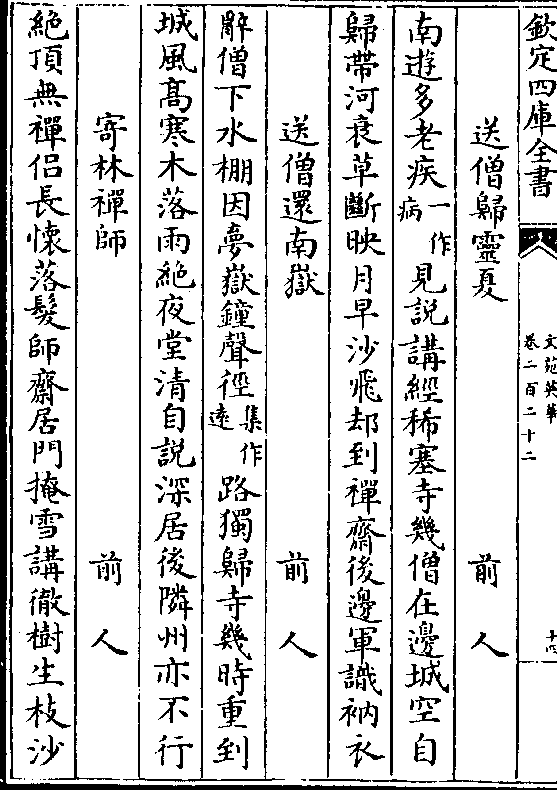 欽定四庫全書
文苑英華
卷二百二十二
十四
送僧歸靈夏
前人
南遊多老疾一作病見說講經稀塞寺幾僧在邊城空自
歸帶河衰草斷映月早沙飛却到禪齋後邊軍識衲衣
送僧還南嶽
前人
辭僧下水棚因夢嶽鐘聲徑集作遠路獨歸寺幾時重到
城風髙寒木落雨絶夜堂清自説深居後隣州亦不行
寄林禪師
前人
絶頂無禪侶長懷落髮師齋居門掩雪講徹樹生枝沙